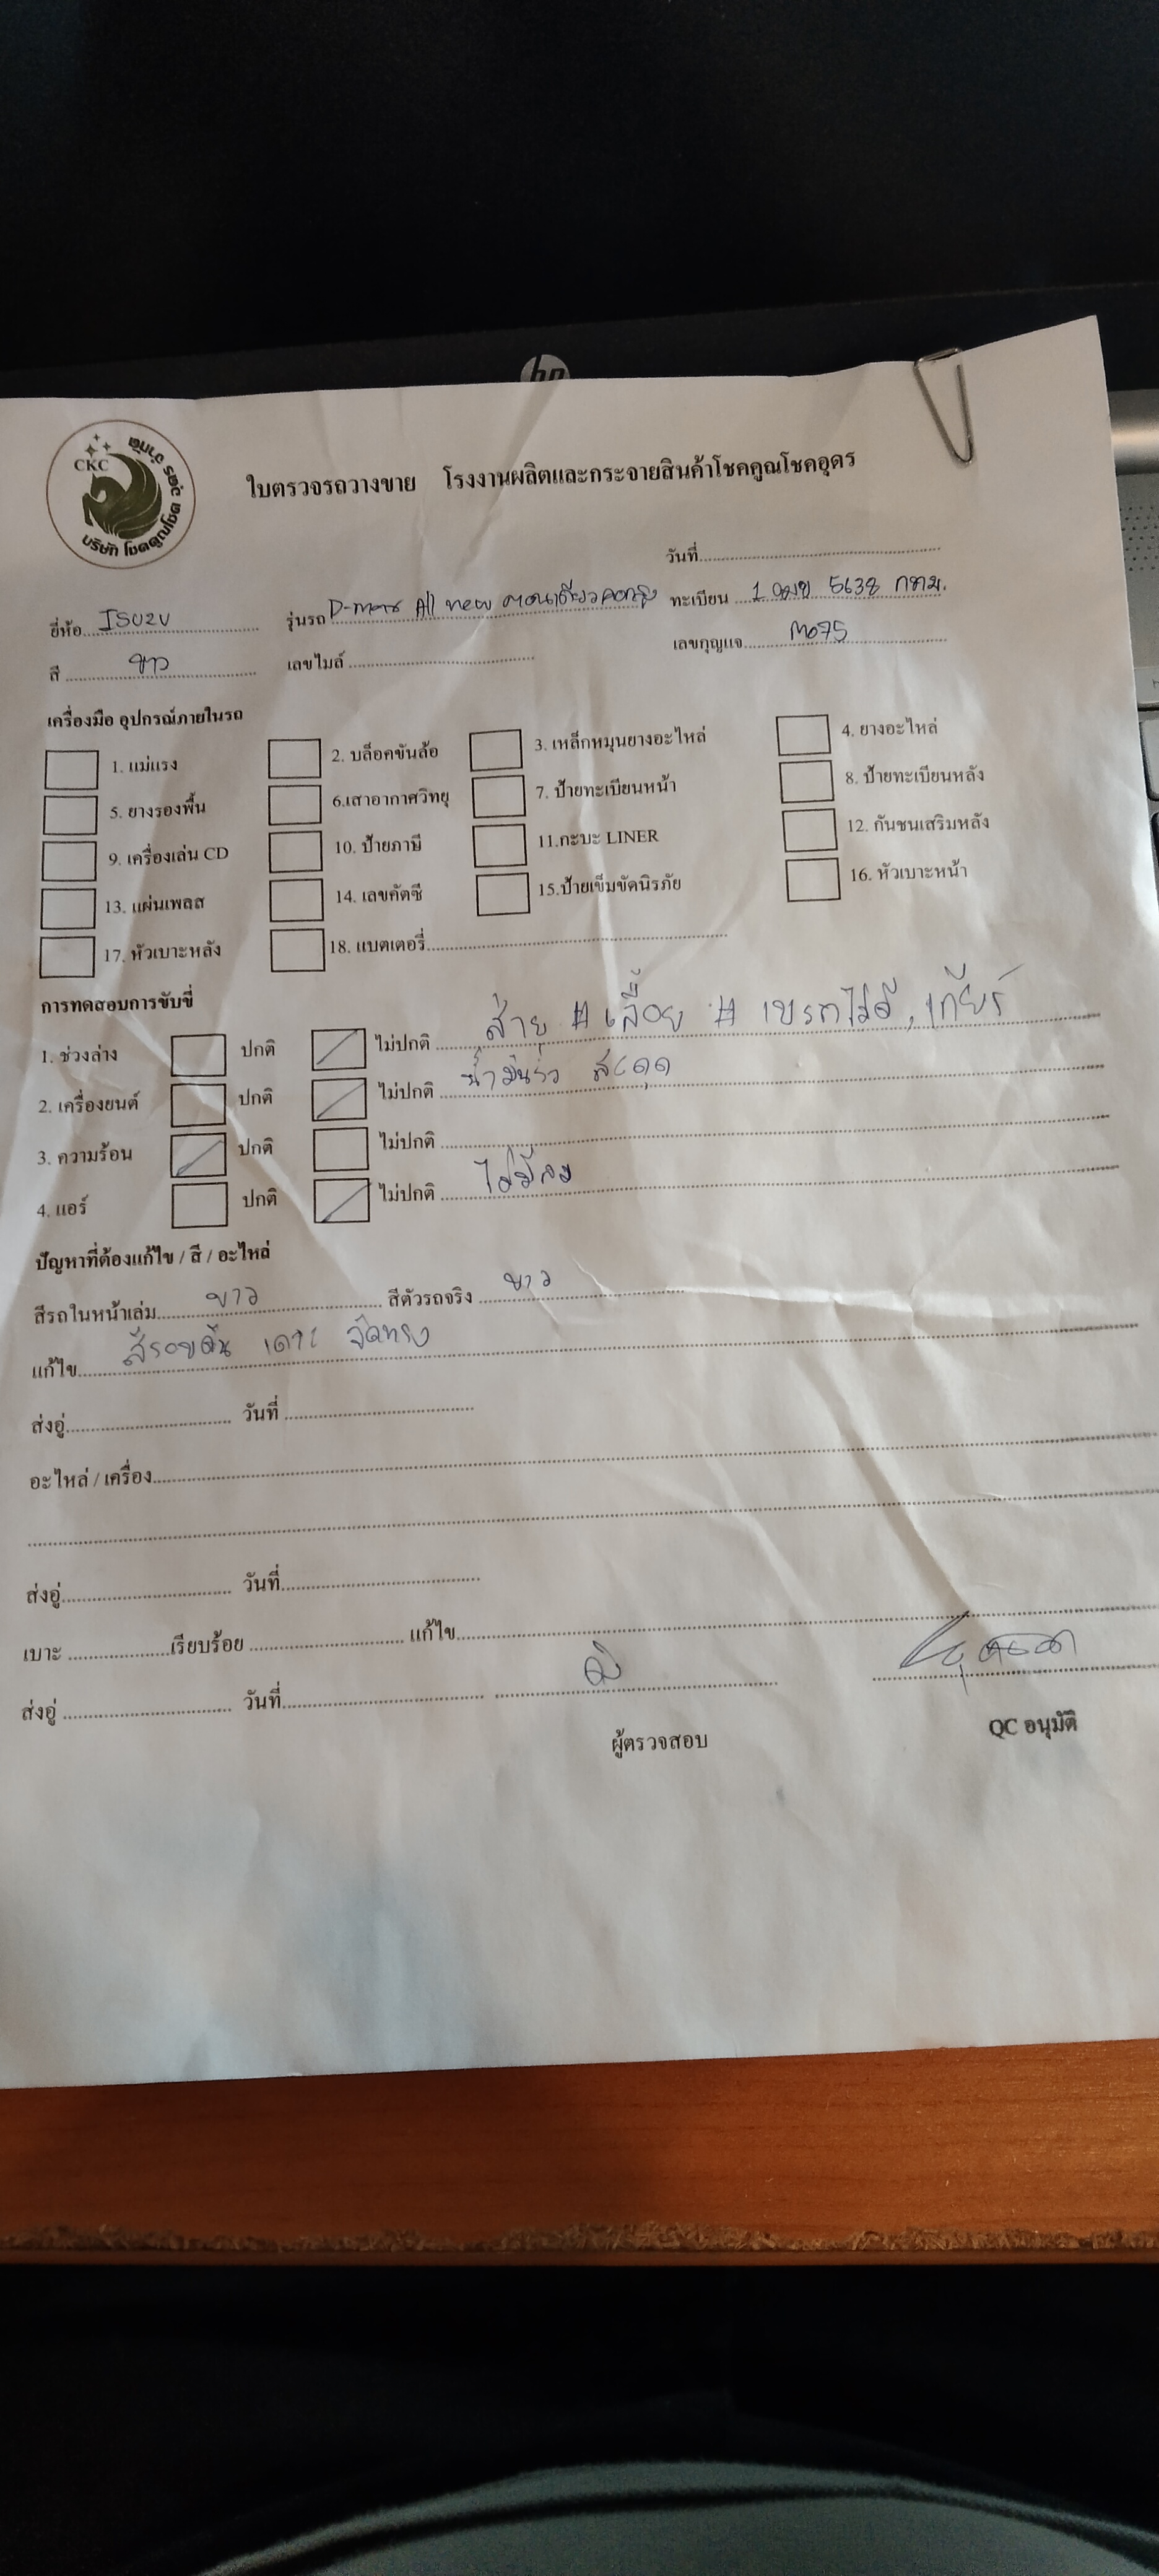 hp
CKC
บริษัท โชคคูณโชค อุดร จำกัด
ใบตรวจรถวางขาย โรงงานผลิตและกระจายสินค้าโชคคูณโชคอุดร
วันที่
ยี่ห้อ ISUZU รุ่นรถ D-max All new ตอนเดียว ทะเบียน 1 5638 กทม.
สี ขาว เลขไมล์ เลขกุญแจ M075
เครื่องมือ อุปกรณ์ภายในรถ
1. แม่แรง 2. บล็อคขันล้อ 3. เหล็กหมุนยางอะไหล่ 4. ยางอะไหล่
5. ยางรองพื้น 6.เสาอากาศวิทยุ 7. ป้ายทะเบียนหน้า 8. ป้ายทะเบียนหลัง
9. เครื่องเล่น CD 10. ป้ายภาษี 11.กะบะ LINER 12. กันชนเสริมหลัง
13. แผ่นเพลส 14. เลขคัตซี 15.ป้ายเข็มขัดนิรภัย 16. หัวเบาะหน้า
17. หัวเบาะหลัง 18. แบตเตอรี่
การทดสอบการขับขี่
1. ช่วงล่าง ปกติ ไม่ปกติ ส่าย # เลื้อย # เบรกไม่ดี, เกียร์
2. เครื่องยนต์ ปกติ ไม่ปกติ น้ำมันรั่ว สะดุด
3. ความร้อน ปกติ ไม่ปกติ
4. แอร์ ปกติ ไม่ปกติ ไม่มีลม
ปัญหาที่ต้องแก้ไข / สี / อะไหล่
สีรถในหน้าเล่ม ขาว สีตัวรถจริง ขาว
แก้ไข สีรอบคัน เคาะ จัดทรง
ส่งอู่ วันที่
อะไหล่ / เครื่อง
ส่งอู่ วันที่
เบาะ เรียบร้อย แก้ไข
ส่งอู่ วันที่
ผู้ตรวจสอบ QC อนุมัติ